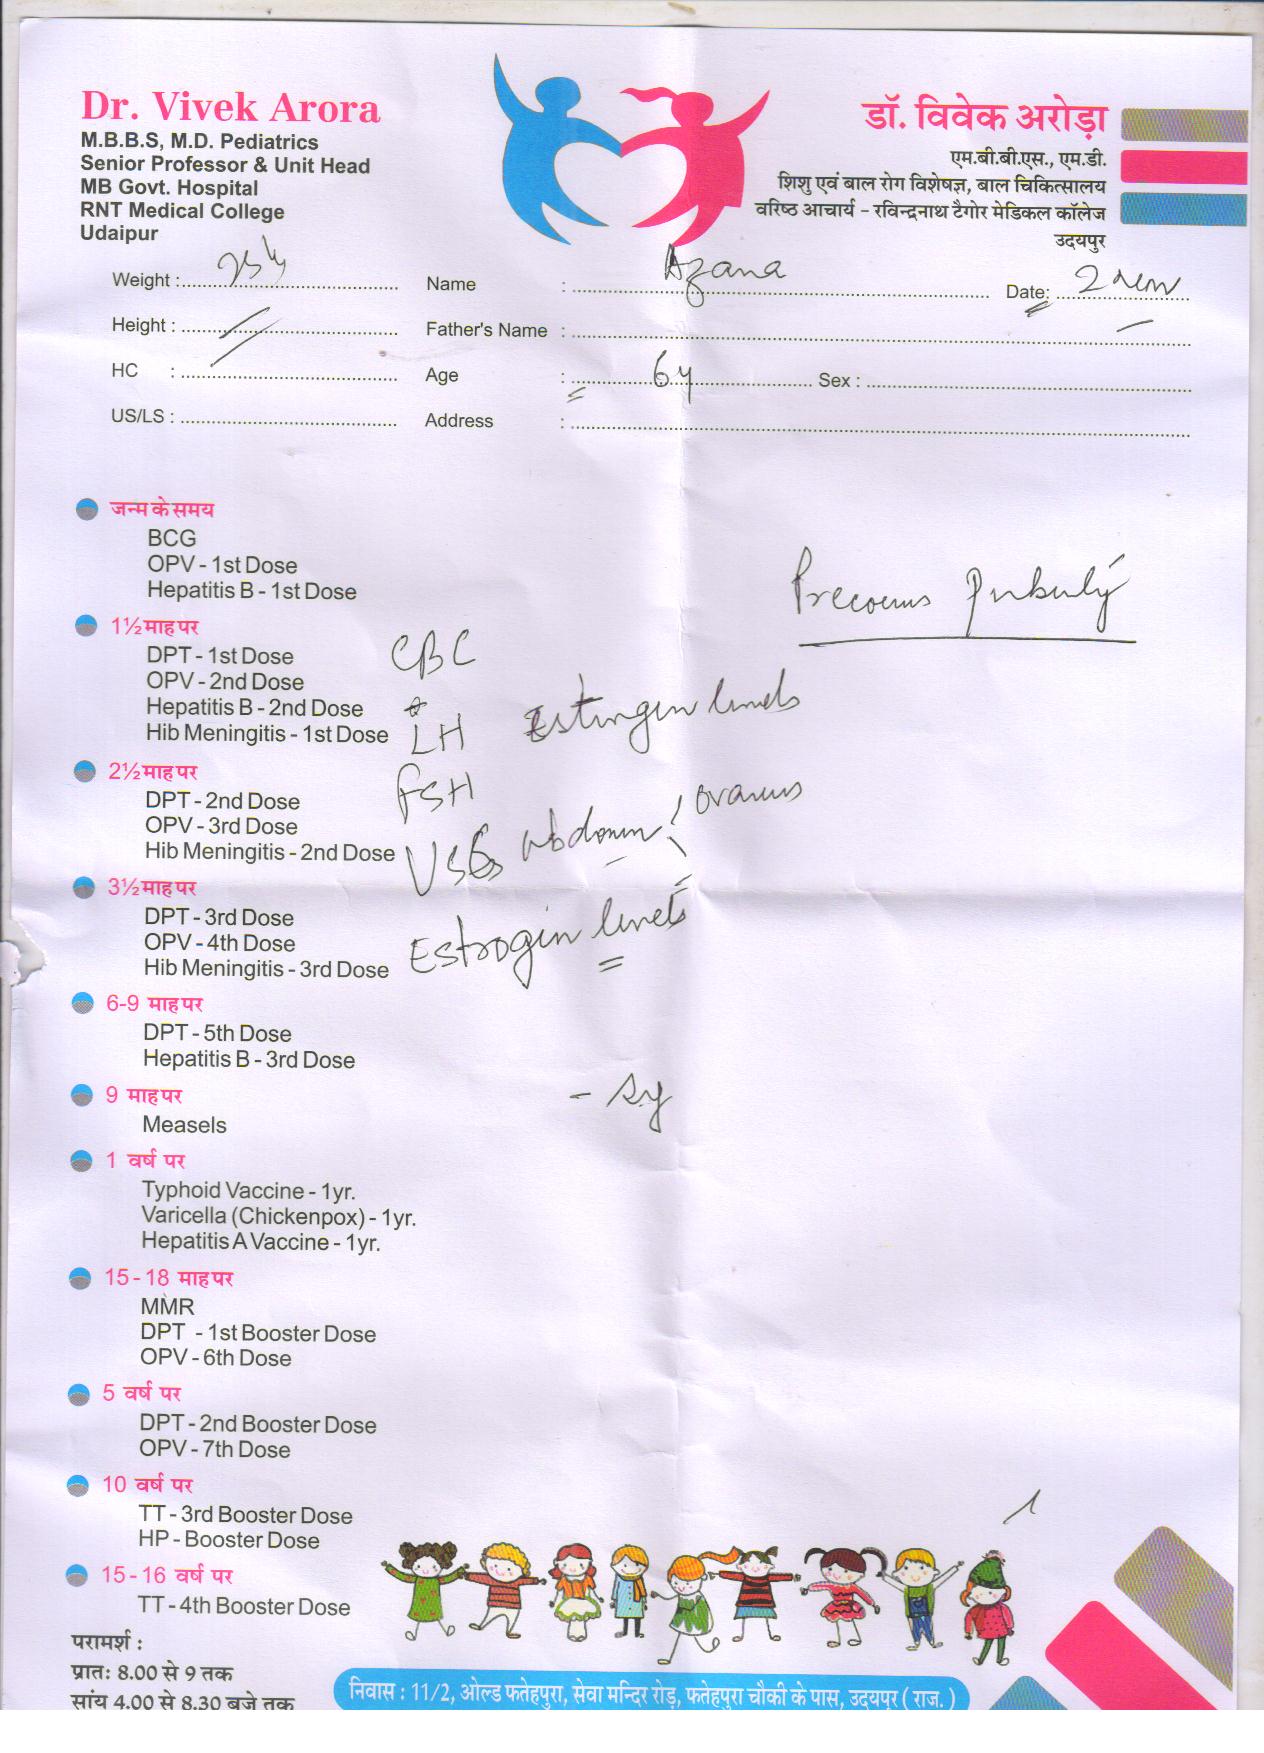 Dr. Vivek Arora
M.B.B.S, M.D. Pediatrics
Senior Professor & Unit Head
MB Govt. Hospital
RNT Medical College
Udaipur
डॉ. विवेक अरोड़ा
एम.बी.बी.एस., एम.डी.
शिशु एवं बाल रोग विशेषज्ञ, बाल चिकित्सालय
वरिष्ठ आचार्य – रविन्द्रनाथ टैगोर मेडिकल कॉलेज
उदयपुर
Weight : Name : Azana Date: 2
Height : Father's Name :
HC : Age : 6y Sex :
US/LS : Address :
जन्म के समय
BCG
OPV - 1st Dose
Hepatitis B - 1st Dose
Precocius Puberty
1½ माह पर
DPT - 1st Dose
OPV - 2nd Dose
Hepatitis B - 2nd Dose
Hib Meningitis - 1st Dose
CBC
LH Estrogen levels
2½ माह पर
DPT - 2nd Dose
OPV - 3rd Dose
Hib Meningitis - 2nd Dose
FSH
USG Abdomen ovaries
3½ माह पर
DPT - 3rd Dose
OPV - 4th Dose
Hib Meningitis - 3rd Dose
Estrogin levels
6-9 माह पर
DPT - 5th Dose
Hepatitis B - 3rd Dose
9 माह पर
Measels
1 वर्ष पर
Typhoid Vaccine - 1yr.
Varicella (Chickenpox) - 1yr.
Hepatitis A Vaccine - 1yr.
15 - 18 माह पर
MMR
DPT - 1st Booster Dose
OPV - 6th Dose
5 वर्ष पर
DPT - 2nd Booster Dose
OPV - 7th Dose
10 वर्ष पर
TT - 3rd Booster Dose
HP - Booster Dose
15 - 16 वर्ष पर
TT - 4th Booster Dose
परामर्श :
प्रातः 8.00 से 9 तक
सांय 4.00 से 8.30 बजे तक
निवास : 11/2, ओल्ड फतेहपुरा, सेवा मन्दिर रोड़, फतेहपुरा चौकी के पास, उदयपुर ( राज. )